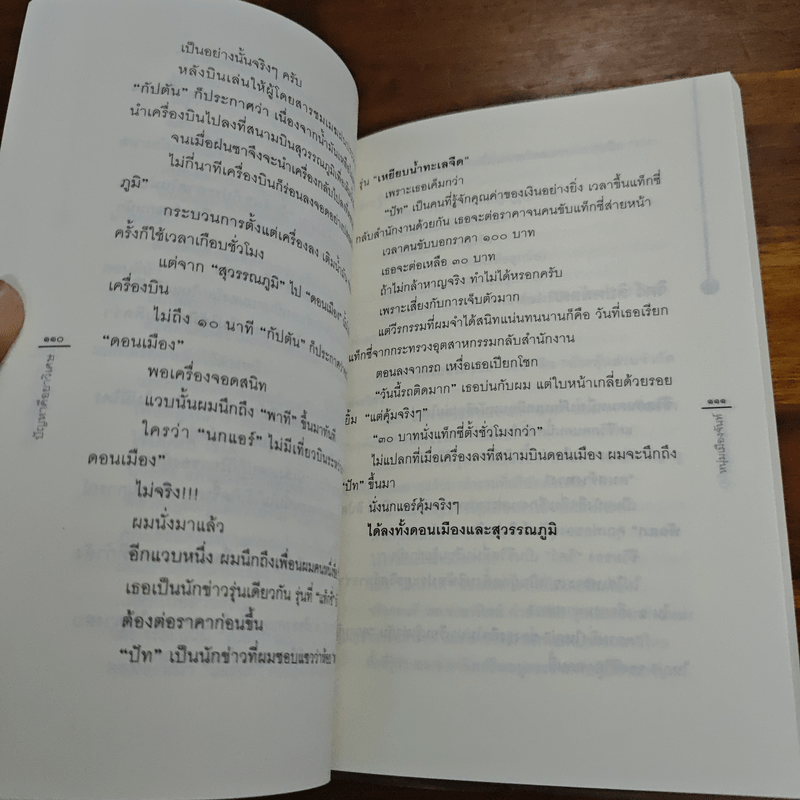 เป็นอย่างนั้นจริงๆ ครับ
หลังบินเล่นให้ผู้โดยสารชมเมฆ
“กัปตัน” ก็ประกาศว่า เนื่องจากน้ำมันเหลือ
นำเครื่องบินไปลงที่สนามบินสุวรรณภูมิเพื่อเติม
จนเมื่อฝนซาจึงจะนำเครื่องกลับไปลงที่
ไม่กี่นาทีเครื่องบินก็ร่อนลงจอดอย่าง
ภูมิ”
กระบวนการตั้งแต่เครื่องลง เติมน้ำมัน
ครั้งก็ใช้เวลาเกือบชั่วโมง
แต่จาก “สุวรรณภูมิ” ไป “ดอนเมือง”
เครื่องบิน
ไม่ถึง ๑๐ นาที “กัปตัน” ก็ประกาศว่า
“ดอนเมือง”
พอเครื่องจอดสนิท
แวบนั้นผมนึกถึง “พาที” ขึ้นมาทันที
ใครว่า “นกแอร์” ไม่มีเที่ยวบินระหว่าง
ดอนเมือง”
ไม่จริง!!!
ผมนั่งมาแล้ว
อีกแวบหนึ่ง ผมนึกถึงเพื่อนผมคนหนึ่ง
เธอเป็นนักข่าวรุ่นเดียวกัน รุ่นที่
ต้องต่อราคาก่อนขึ้น
“ปัท” เป็นนักข่าวที่ผมชอบแซวว่า
๑๑๐
ปัญหาคือยาวิเศษ
รุ่น “เหยียบน้ำทะเลจืด”
เพราะเธอเค็มกว่า
“ปัท” เป็นคนที่รู้จักคุณค่าของเงินอย่างยิ่ง เวลาขึ้นแท็กซี่
กลับสำนักงานด้วยกัน เธอจะต่อราคาจนคนขับแท็กซี่ส่ายหน้า
เวลาคนขับบอกราคา ๑๐๐ บาท
เธอจะต่อเหลือ ๓๐ บาท
ถ้าไม่กล้าหาญจริง ทำไม่ได้หรอกครับ
เพราะเสี่ยงกับการเจ็บตัวมาก
แต่วีรกรรมที่ผมจำได้สนิทแน่นทนนานก็คือ วันที่เธอเรียก
แท็กซี่จากกระทรวงอุตสาหกรรมกลับสำนักงาน
ตอนลงจากรถ เหงื่อเธอเปียกโชก
“วันนี้รถติดมาก” เธอบ่นกับผม แต่ใบหน้าเกลี่ยด้วยรอย
ยิ้ม “แต่คุ้มจริงๆ”
“๓๐ บาทนั่งแท็กซี่ตั้งชั่วโมงกว่า”
ไม่แปลกที่เมื่อเครื่องลงที่สนามบินดอนเมือง ผมจะนึกถึง
“ปัท” ขึ้นมา
นั่งนกแอร์คุ้มจริงๆ
ได้ลงทั้งดอนเมืองและสุวรรณภูมิ
๑๑๑
หนุ่มเมืองจันท์